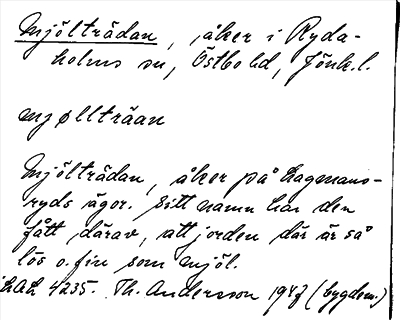 Mjölträdan, åker i Ryda-
holms sn, Östbo hd, Jönk.l.
mjøllträan
Mjölträdan, åker på Lagmans-
ryds ägor. Sitt namn har den
fått därav, att jorden där är så
lös o. fin som mjöl.
LAL 4235. Th. Andersson 1947 (bygdem.)